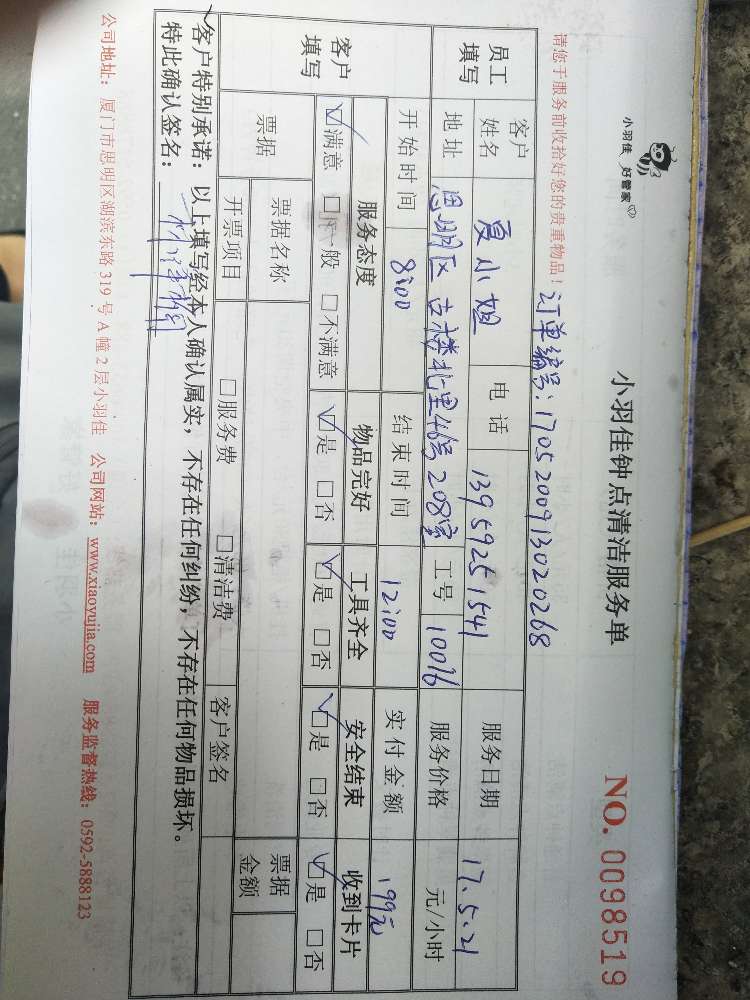 小羽佳 好管家
小羽佳钟点清洁服务单
NO. 0098519
请您于服务前收拾好您的贵重物品！
订单编号：1705200913020268
员工填写
客户姓名 夏小姐 电话 13959251541 服务日期 17.5.21
地址 思明区 古楼北里46号208室 工号 10076 服务价格 元/小时
客户填写
开始时间 8:00 结束时间 12:00 实付金额 199元
服务态度 物品完好 工具齐全 安全结束 收到卡片
☑满意 □一般 □不满意 ☑是 □否 ☑是 □否 ☑是 □否 ☑是 □否
票据 票据名称 票据金额
开票项目 □服务费 □清洁费 客户签名
客户特别承诺：以上填写经本人确认属实，不存在任何纠纷，不存在任何物品损坏。
特此确认签名：
公司地址：厦门市思明区湖滨东路319号A幢2层小羽佳 公司网站：www.xiaoyujia.com 服务监督热线：0592-5888123